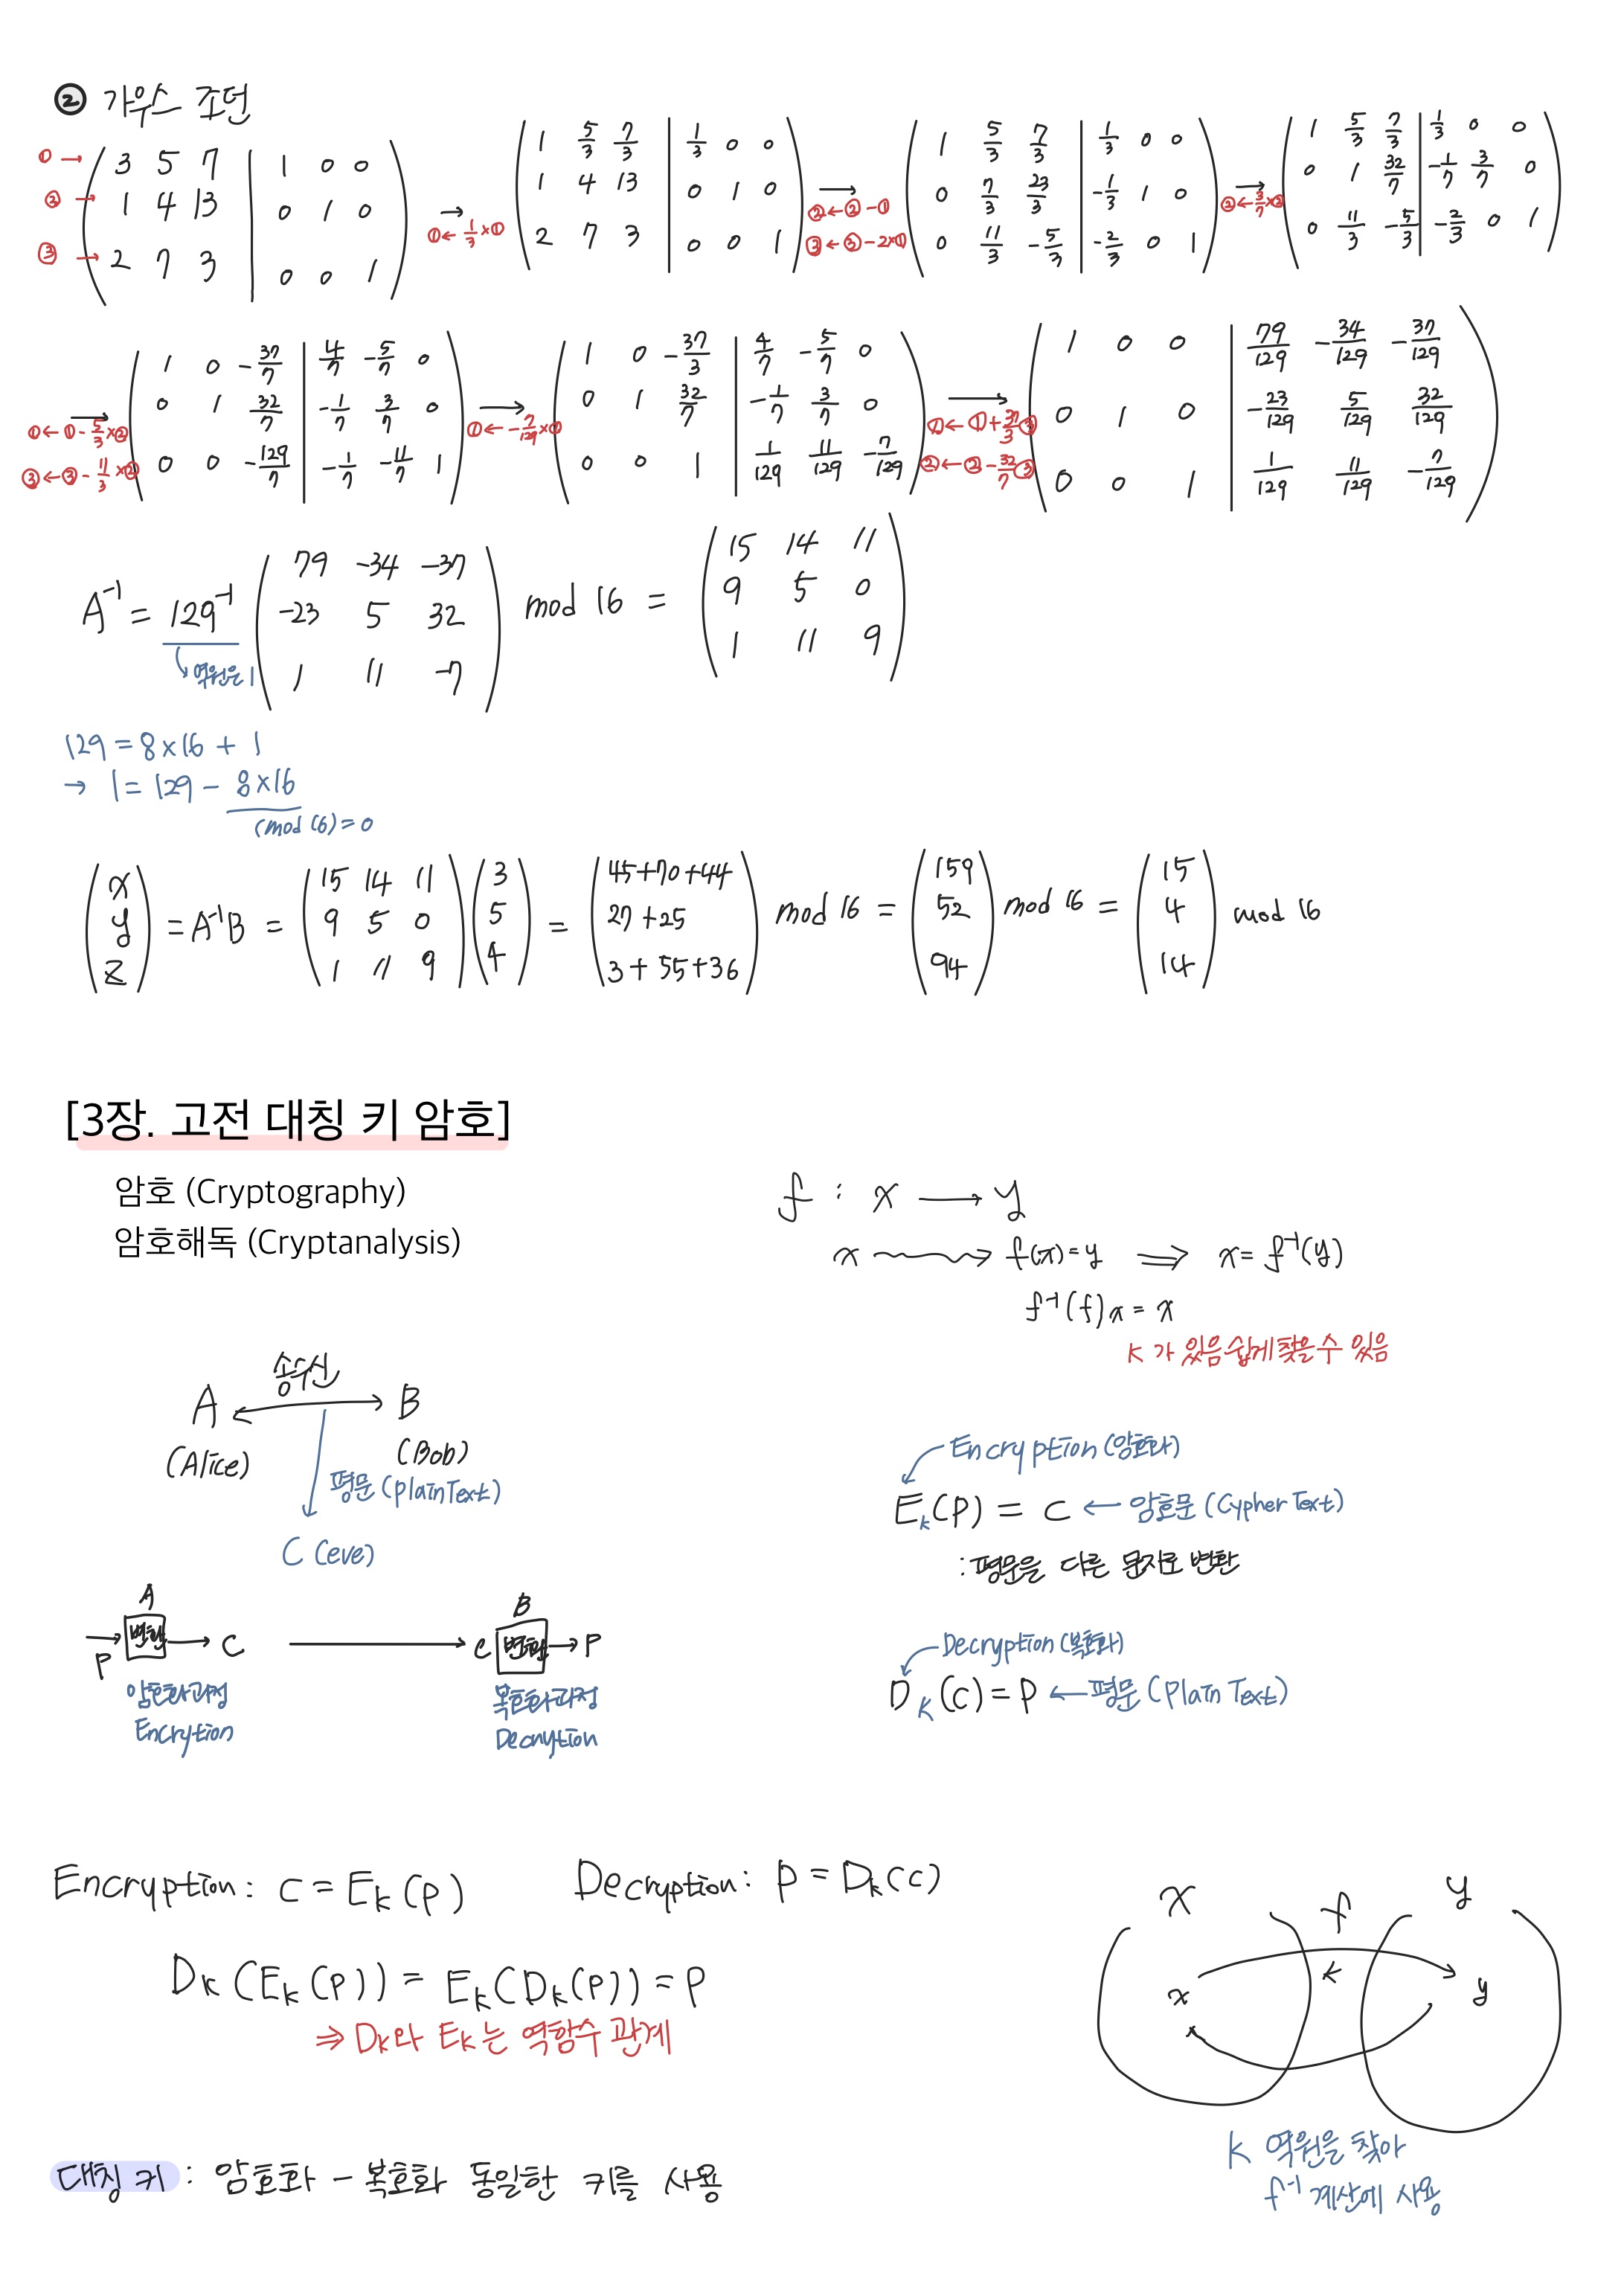 ② 가우스 조던
① → ( 3 5 7 | 1 0 0 )
② → ( 1 4 13 | 0 1 0 )
③ → ( 2 7 3 | 0 0 1 )
→ ① ← 1/3 × ①
( 1 5/3 7/3 | 1/3 0 0 )
( 1 4 13 | 0 1 0 )
( 2 7 3 | 0 0 1 )
→ ② ← ② - ①
③ ← ③ - 2×①
( 1 5/3 7/3 | 1/3 0 0 )
( 0 7/3 23/3 | -1/3 1 0 )
( 0 11/3 -5/3 | -2/3 0 1 )
→ ② ← 3/7 × ②
( 1 5/3 7/3 | 1/3 0 0 )
( 0 1 32/7 | -1/7 3/7 0 )
( 0 11/3 -5/3 | -2/3 0 1 )
→ ① ← ① - 5/3 × ②
③ ← ③ - 11/3 × ②
( 1 0 -37/7 | 4/7 -5/7 0 )
( 0 1 32/7 | -1/7 3/7 0 )
( 0 0 -129/7 | -1/7 -11/7 1 )
→ ① ← -7/129 × ①
( 1 0 -37/3 | 4/7 -5/7 0 )
( 0 1 32/7 | -1/7 3/7 0 )
( 0 0 1 | 1/129 11/129 -7/129 )
→ ① ← ① + 37/3 ③
② ← ② - 32/7 ③
( 1 0 0 | 79/129 -34/129 -37/129 )
( 0 1 0 | -23/129 5/129 32/129 )
( 0 0 1 | 1/129 11/129 -7/129 )
A⁻¹ = 129⁻¹ ( 79 -34 -37 / -23 5 32 / 1 11 -7 ) mod 16 = ( 15 14 11 / 9 5 0 / 1 11 9 )
역원은 1
129 = 8×16 + 1
→ 1 = 129 - 8×16
(mod 16) = 0
( x / y / z ) = A⁻¹B = ( 15 14 11 / 9 5 0 / 1 11 9 ) ( 3 / 5 / 4 ) = ( 45+70+44 / 27+25 / 3+55+36 ) mod 16 = ( 159 / 52 / 94 ) mod 16 = ( 15 / 4 / 14 ) mod 16
[3장. 고전 대칭 키 암호]
암호 (Cryptography)
암호해독 (Cryptanalysis)
f : x → y
x → f(x) = y ⇒ x = f⁻¹(y)
f⁻¹(f)x = x
k가 있음 쉽게 찾을 수 있음
송수신
A ↔ B
(Alice) (Bob)
평문 (PlainText)
C (eve)
Encryption (암호화)
Eₖ(P) = C ← 암호문 (Cypher Text)
: 평문을 다른 문자로 변환
A B
→ P 변환 → C → C 변환 → P
암호화과정 복호화과정
Encrytion Decrytion
Decryption (복호화)
Dₖ(C) = P ← 평문 (Plain Text)
Encryption : C = Eₖ(P) Decryption : P = Dₖ(C)
Dₖ(Eₖ(P)) = Eₖ(Dₖ(P)) = P
⇒ Dk와 Ek는 역함수 관계
x f y
←
x y
k 역원을 찾아
f⁻¹ 계산에 사용
대칭 키 : 암호화 - 복호화 동일한 키를 사용